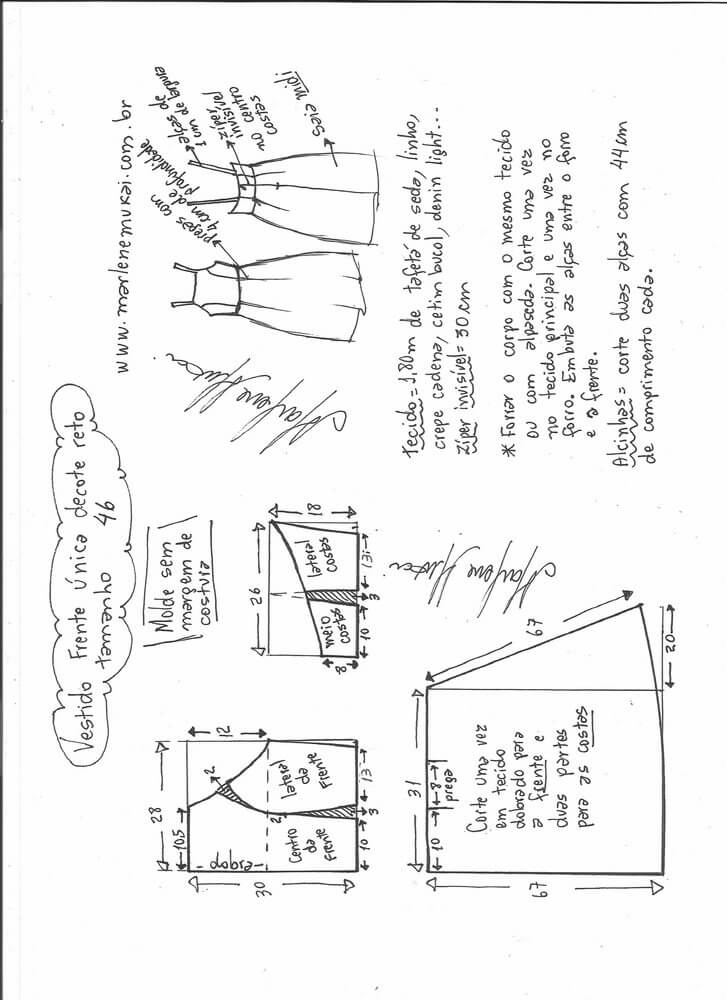 Vestido Frente única decote reto
tamanho 46
www.marlenemukai.com.br
Molde sem
margem de
costura
pregas com
4 cm de
profundidade
alças de
1 cm de largura
zíper
invisível
no centro
costas
Saia midi
28
10,5
12
30
dobra
2
2
Centro
de
Frente
lateral
de
Frente
10
3
13
26
18
8
meio
costas
lateral
costas
10
3
13
Tecido = 1,80m de tafetá de seda, linho,
crepe cadena, cetim bucol, denin light...
Zíper invisível = 30 cm
* Forrar o corpo com o mesmo tecido
ou com alpasada. Corte uma vez
no tecido principal e uma vez no
forro. Embuta as alças entre o forro
e a frente.
Alcinhas = corte duas alças com 44cm
de comprimento cada.
31
10
8
prega
67
67
20
Corte uma vez
em tecido
dobrado para
a frente e
duas partes
para as costas